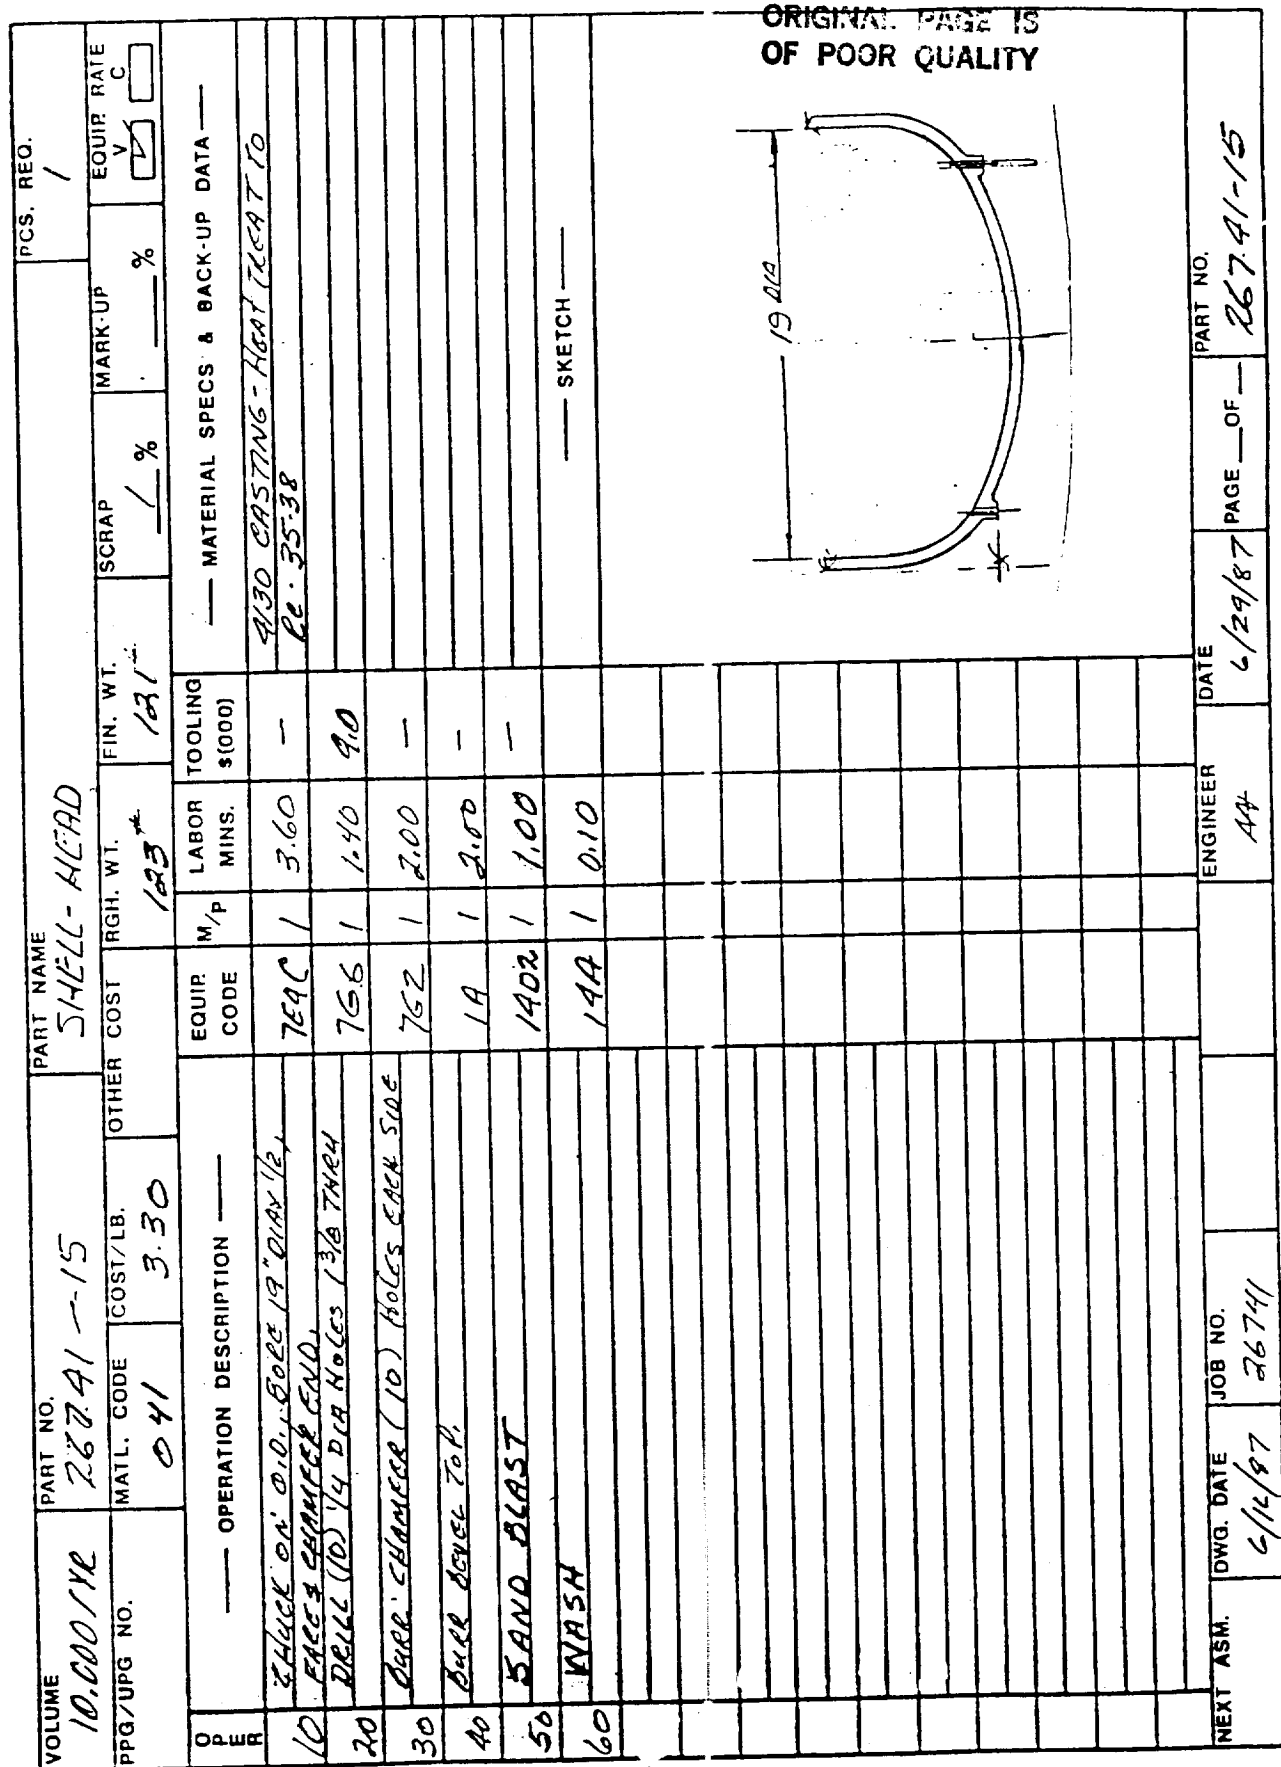 ORIGINAL PAGE IS
OF POOR QUALITY
VOLUME
10,000/YR
PART NO.
26741-15
PART NAME
SHELL-HEAD
PCS. REQ.
1
PPG/UPG NO.
MATL. CODE
041
COST/LB.
3.30
OTHER COST
RGH. WT.
123#
FIN. WT.
121#
SCRAP
1 %
MARK-UP
%
EQUIP. RATE
V C
OPER
OPERATION DESCRIPTION
EQUIP. CODE
M/P
LABOR MINS.
TOOLING $(000)
MATERIAL SPECS & BACK-UP DATA
10 CHUCK ON O.D., BORE 19" DIA X 1/2,
FACE & CHAMFER END. 7EAC 1 3.60 —
20 DRILL (10) 1/4 DIA HOLES 1 3/8 THRU 7G.6 1 1.40 9.0
30 BURR CHAMFER (10) HOLES EACH SIDE 7G2 1 2.00 —
40 BURR BEVEL TOP. 1A 1 2.00 —
50 SAND BLAST 1402 1 1.00 —
60 WASH 14A 1 0.10
4130 CASTING - HEAT TREAT TO
Rc. 35-38
SKETCH
19 DIA
NEXT ASM.
DWG. DATE
JOB NO.
26741
ENGINEER
DATE
6/29/87
PAGE OF
PART NO.
26741-15